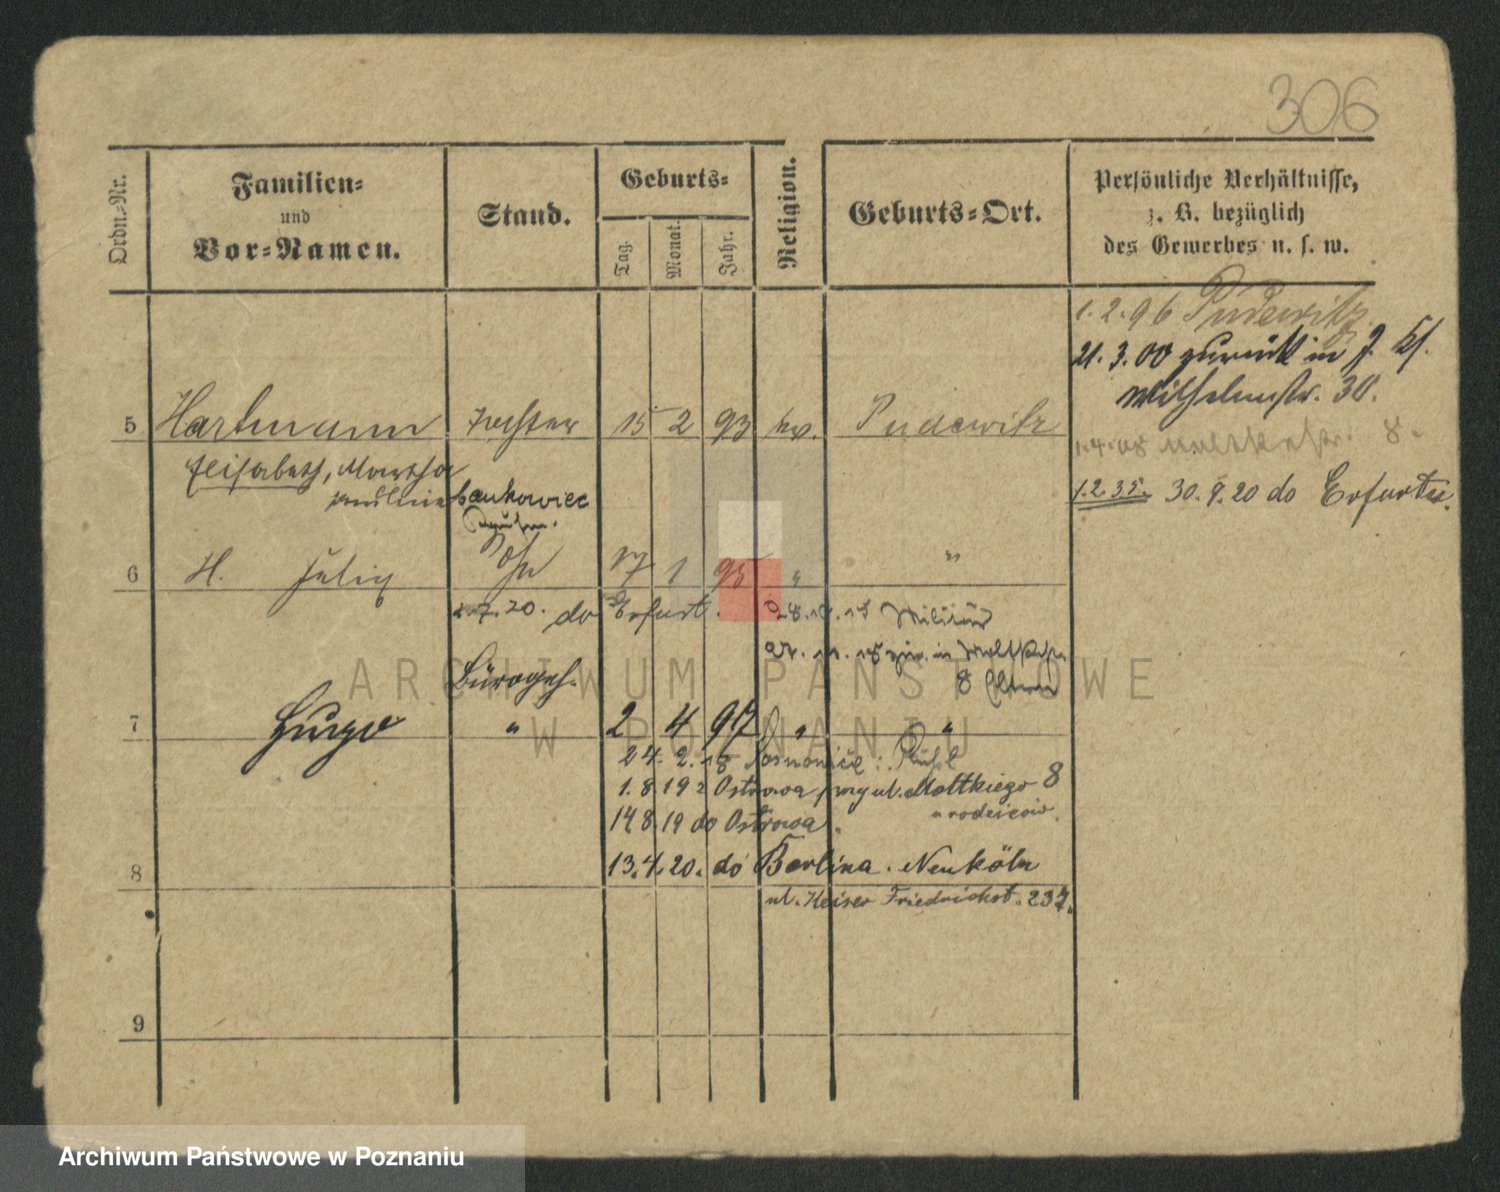 306
Ordn.-Nr.
Familien-
und
Vor-Namen.
Stand.
Geburts-
Tag.
Monat.
Jahr.
Religion.
Geburts-Ort.
Persönliche Verhältnisse,
z. B. bezüglich
des Gewerbes u. s. w.
1.2.96 Pudewitz.
21.3.00 zurück in
Wilhelmstr. 30.
5 Hartmann Tochter 15 2 93 ev. Pudewitz
8.
Elisabeth, Martha
1.2.35. 30.9.20 do Erfurtu.
6 H. Sohn 17 1 95 " "
2.7.20. do Erfurt.
Militär
8 Eltern
Bürogeh.
7 Hugo " 2 4 97 " "
24.2.18
1.8.19 z Ostrowa przy ul. Moltkiego 8
u rodziców.
14.8.19 do Ostrowa.
8 13.4.20. do Berlina. Neuköln
ul. Keiser Friedrichst. 237.
9
ARCHIWUM PAŃSTWOWE
W POZNANIU
Archiwum Państwowe w Poznaniu